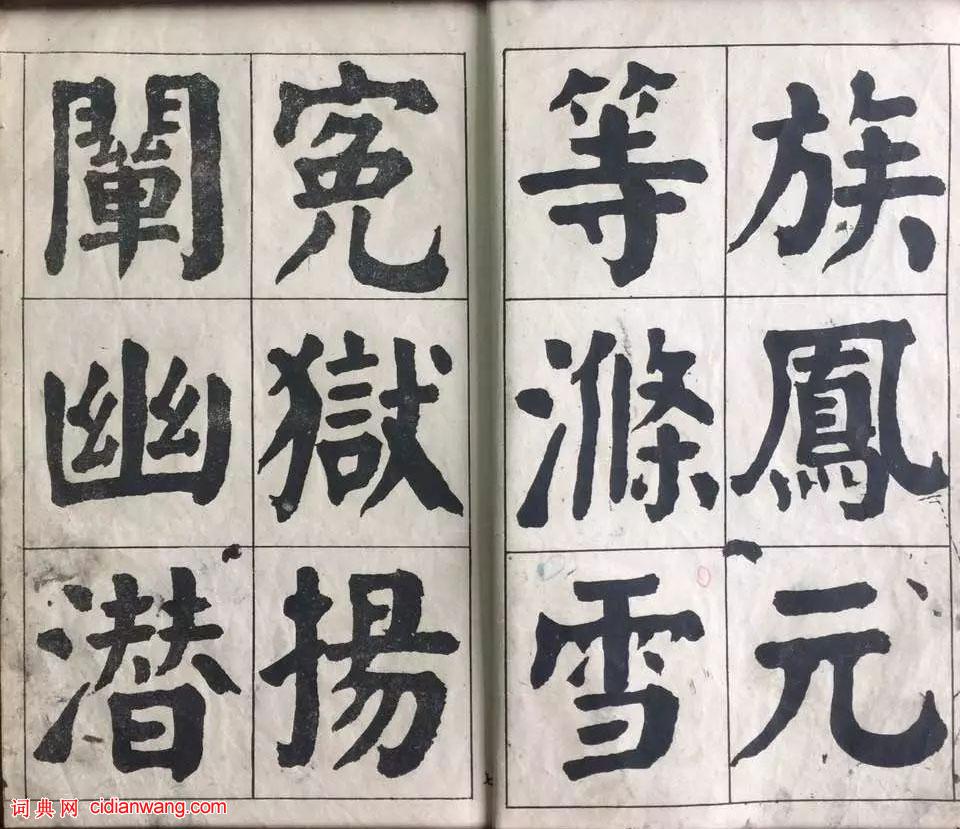 族鳳元
等滌雪
冤獄揚
闡幽潛
词典网 cidianwang.com